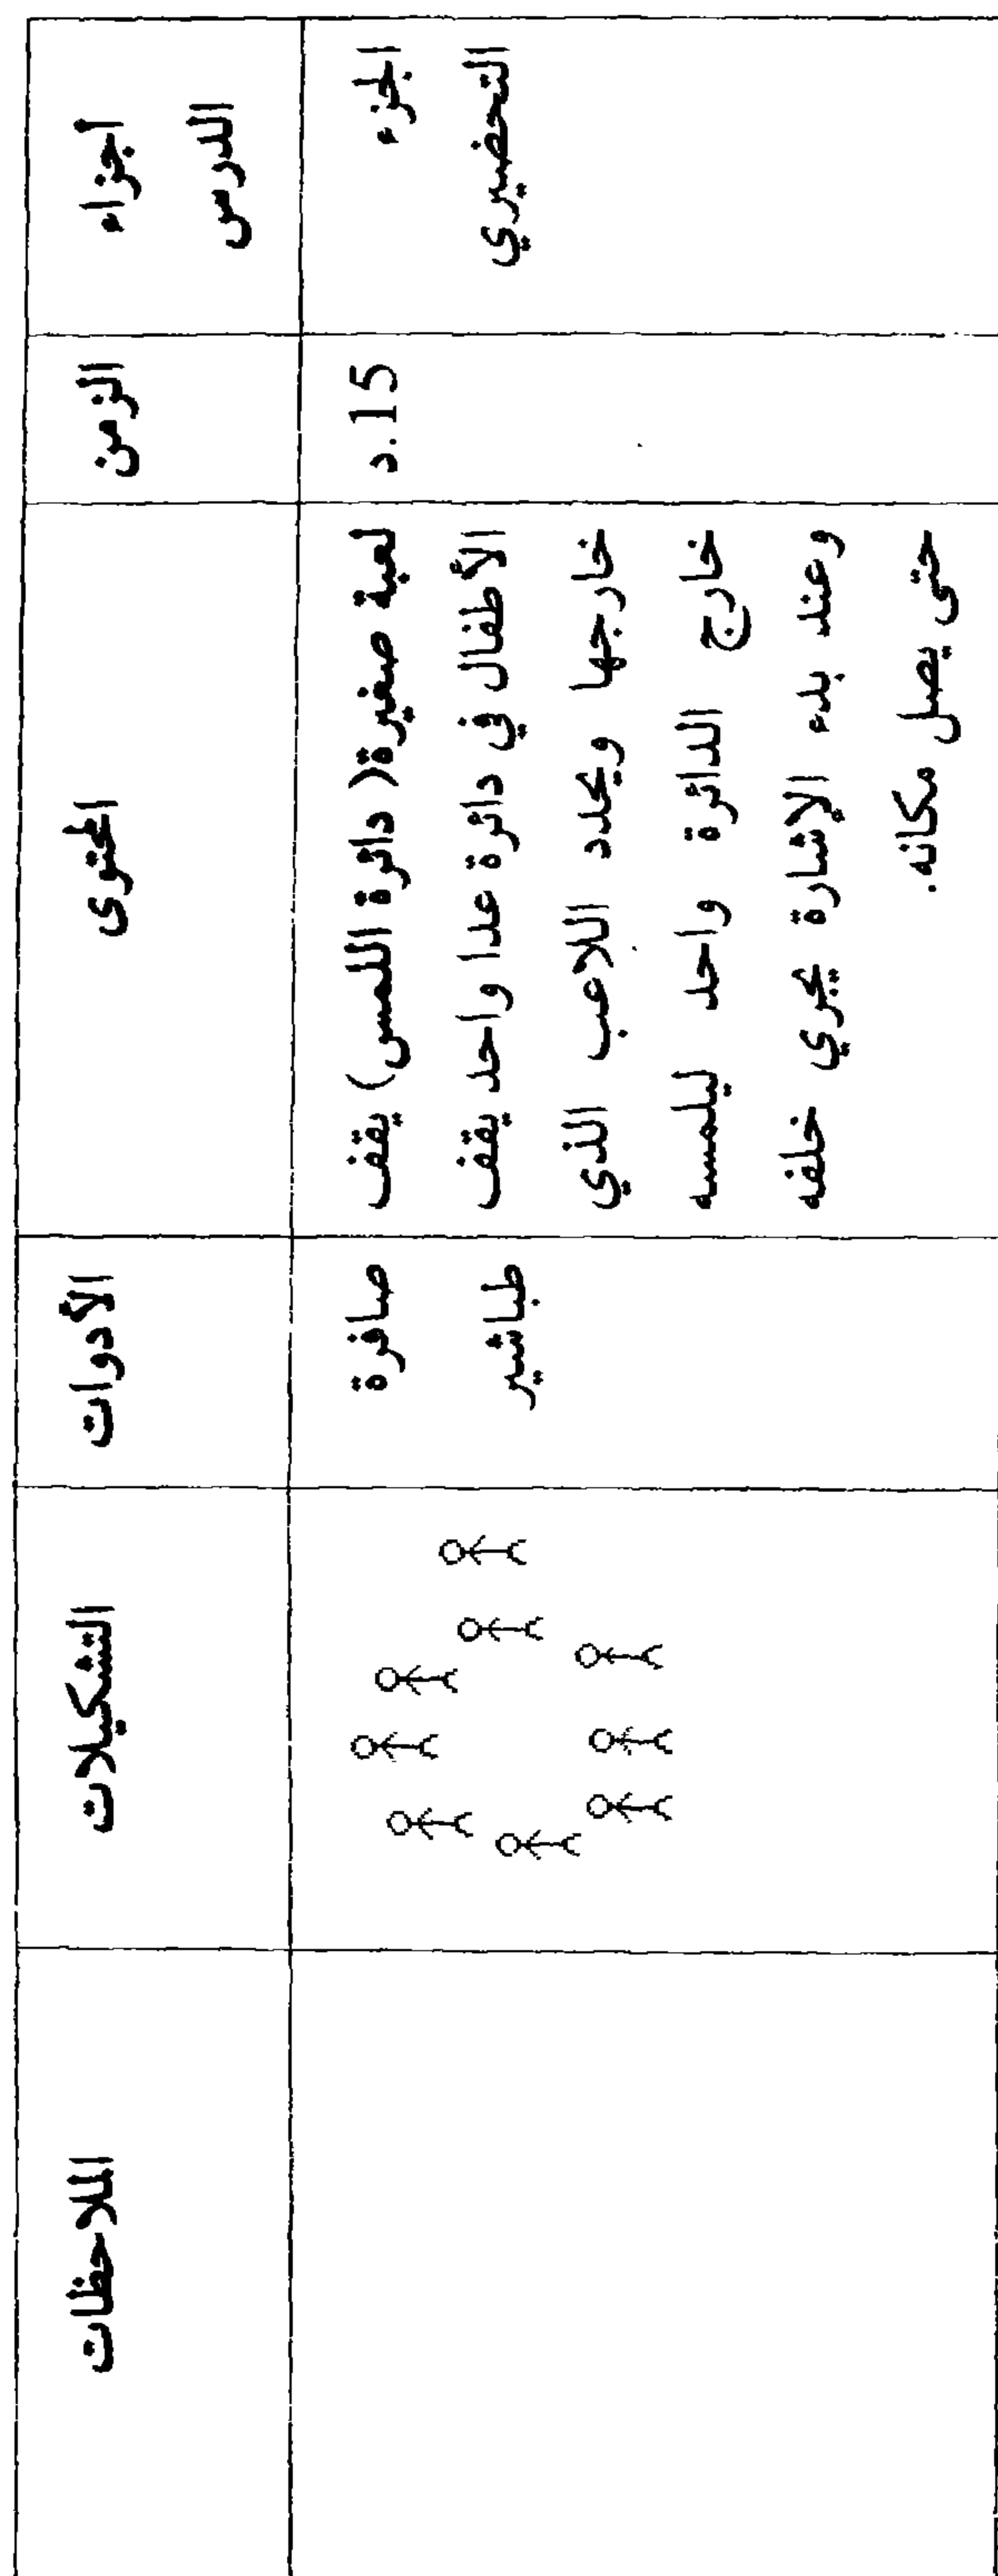 أجزاء
الدرس
الزمن
المحتوى
الأدوات
التشكيلات
الملاحظات
الجزء
التحضيري
15.د
لعبة صغيرة( دائرة اللمس) يقف
الأطفال في دائرة عدا واحد يقف
خارجها ويحدد اللاعب الذي
خارج الدائرة واحد ليلمسه
وعند بدء الإشارة يجري خلفه
حتى يصل مكانه.
صافرة
طباشير